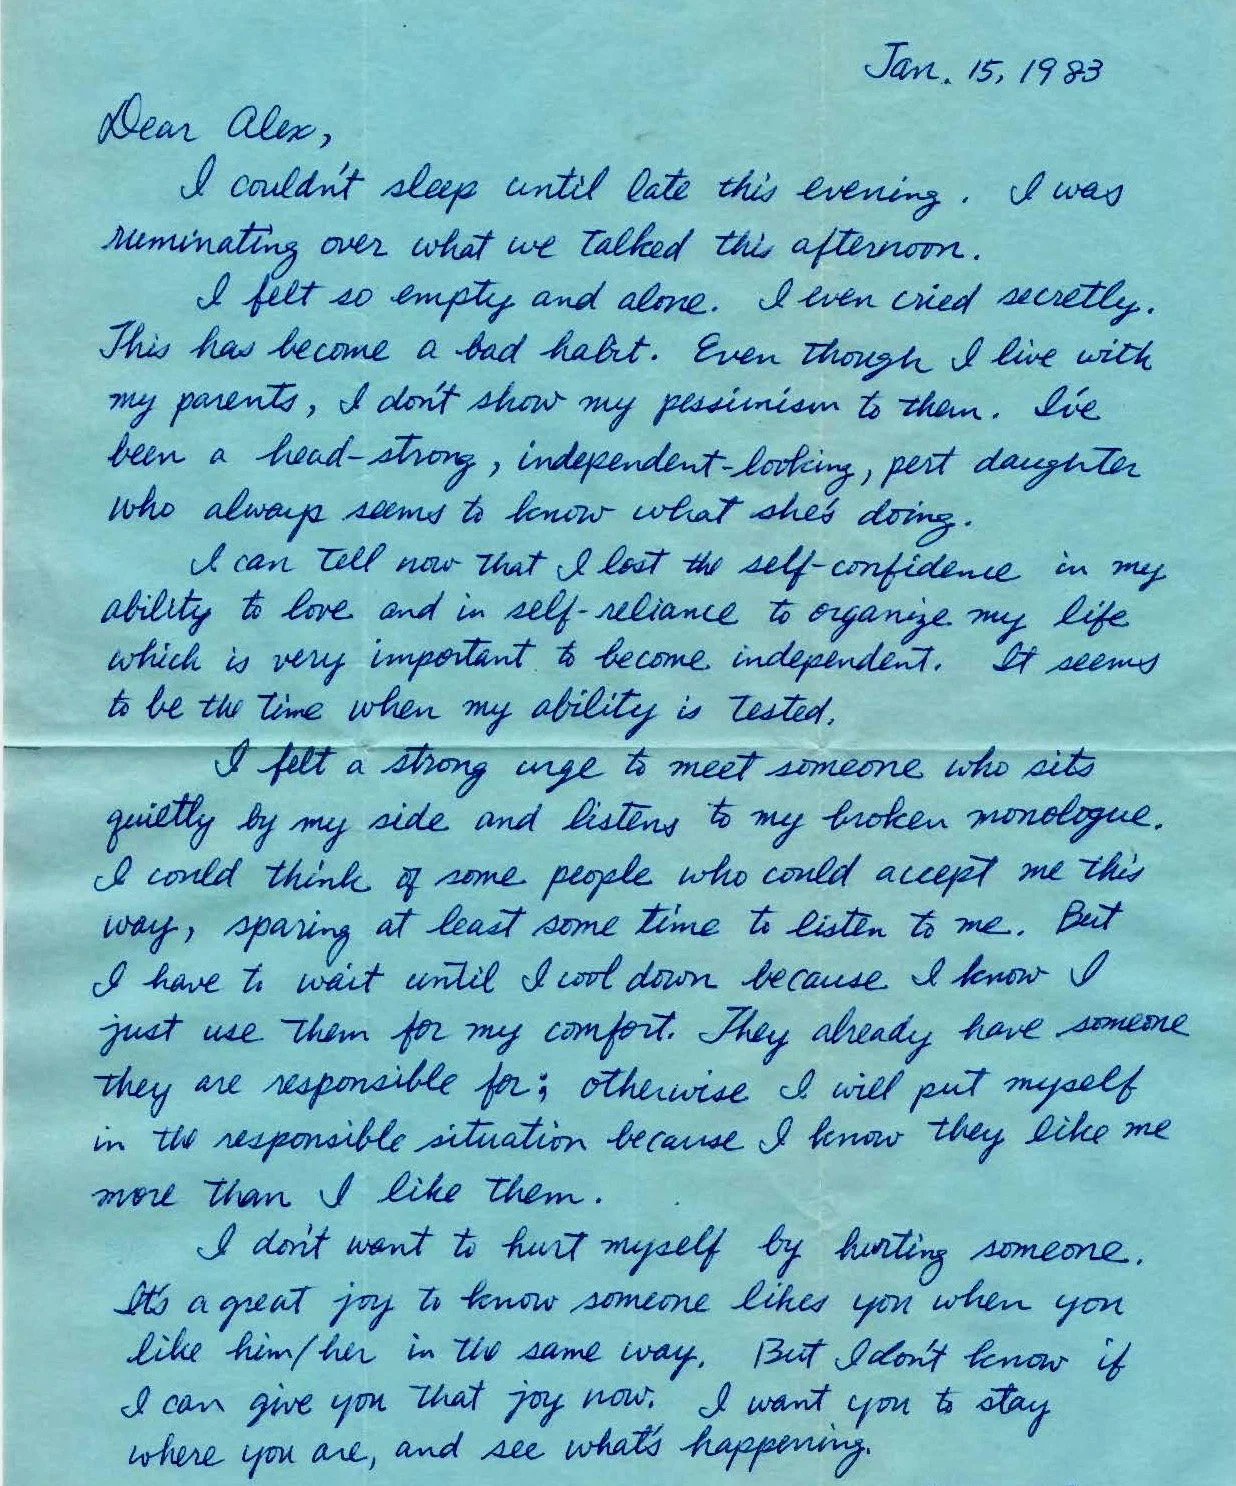 Jan. 15, 1983
Dear Alex,
I couldn't sleep until late this evening. I was
ruminating over what we talked this afternoon.
I felt so empty and alone. I even cried secretly.
This has become a bad habit. Even though I live with
my parents, I don't show my pessimism to them. I've
been a head-strong, independent-looking, pert daughter
who always seems to know what she's doing.
I can tell now that I lost the self-confidence in my
ability to love and in self-reliance to organize my life
which is very important to become independent. It seems
to be the time when my ability is tested.
I felt a strong urge to meet someone who sits
quietly by my side and listens to my broken monologue.
I could think of some people who could accept me this
way, sparing at least some time to listen to me. But
I have to wait until I cool down because I know I
just use them for my comfort. They already have someone
they are responsible for; otherwise I will put myself
in the responsible situation because I know they like me
more than I like them.
I don't want to hurt myself by hurting someone.
It's a great joy to know someone likes you when you
like him/her in the same way. But I don't know if
I can give you that joy now. I want you to stay
where you are, and see what's happening.